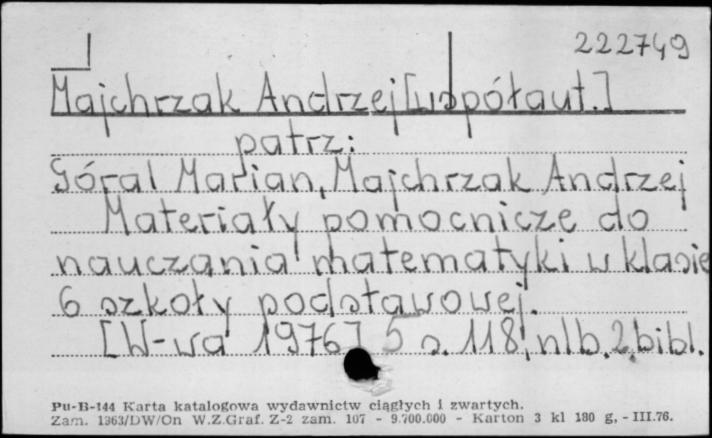 222749
Majchrzak Andrzej [współaut.]
patrz:
Góral Marian, Majchrzak Andrzej
Materiały pomocnicze do
nauczania matematyki w klasie
6 szkoły podstawowej.
[W-wa 1976] 5 s. 118, nlb. 2, bibl.
Pu-B-144 Karta katalogowa wydawnictw ciągłych i zwartych.
Zam. 1363/DW/On W.Z.Graf. Z-2 zam. 107 - 9.700.000 - Karton 3 kl 180 g, - III.76.